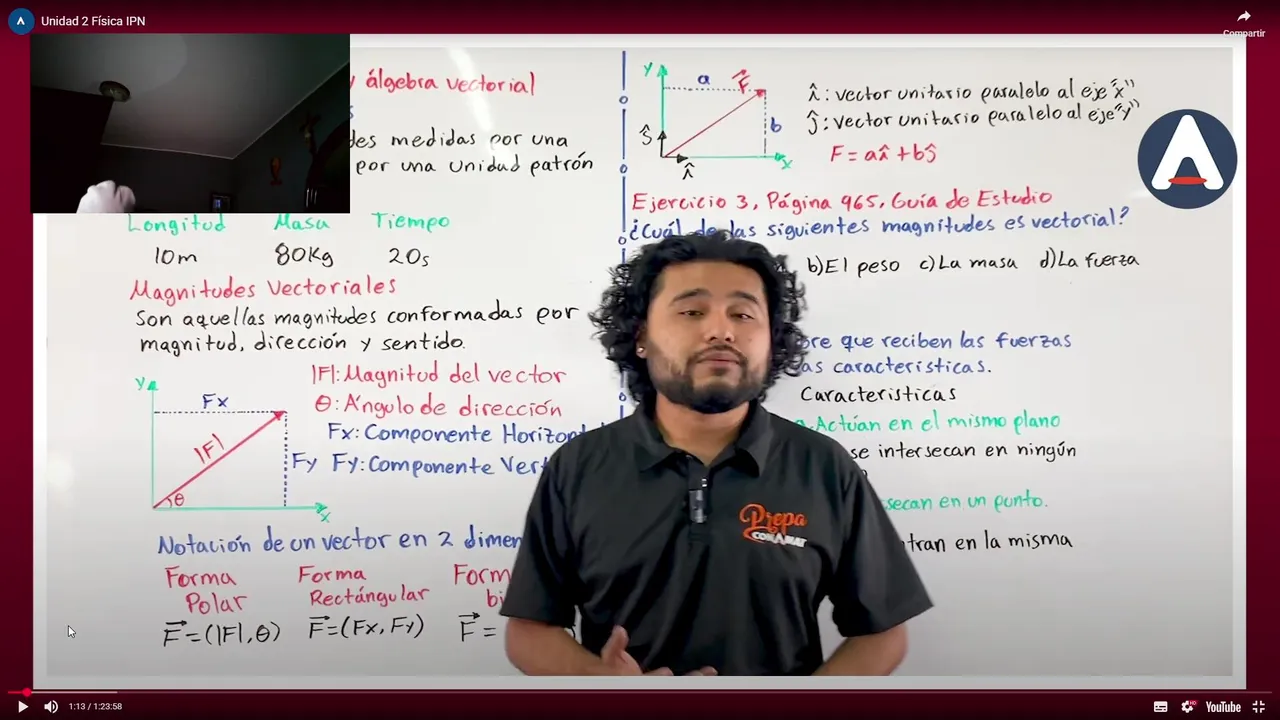 Unidad 2 Física IPN
Compartir
y álgebra vectorial
des medidas por una
por una unidad patrón
Longitud Masa Tiempo
10m 80Kg 20s
Magnitudes Vectoriales
Son aquellas magnitudes conformadas por
magnitud, dirección y sentido.
y
Fx
|F|
Fy
θ
x
|F|: Magnitud del vector
θ: Ángulo de dirección
Fx: Componente Horizont
Fy: Componente Vert
Notación de un vector en 2 dimen
Forma Polar
F=(|F|,θ)
Forma Rectángular
F=(Fx,Fy)
Form
bi
F=
y
a
F
b
ĵ
î
x
î: vector unitario paralelo al eje "x"
ĵ: vector unitario paralelo al eje "y"
F=aî+bĵ
Ejercicio 3, Página 965, Guía de Estudio
¿Cuál de las siguientes magnitudes es vectorial?
b)El peso c)La masa d)La fuerza
bre que reciben las fuerzas
as características.
Caracteristicas
Actúan en el mismo plano
se intersecan en ningún
secan en un punto.
tran en la misma
Prepa
CONAMAT
1:13 / 1:23:58
HD
YouTube